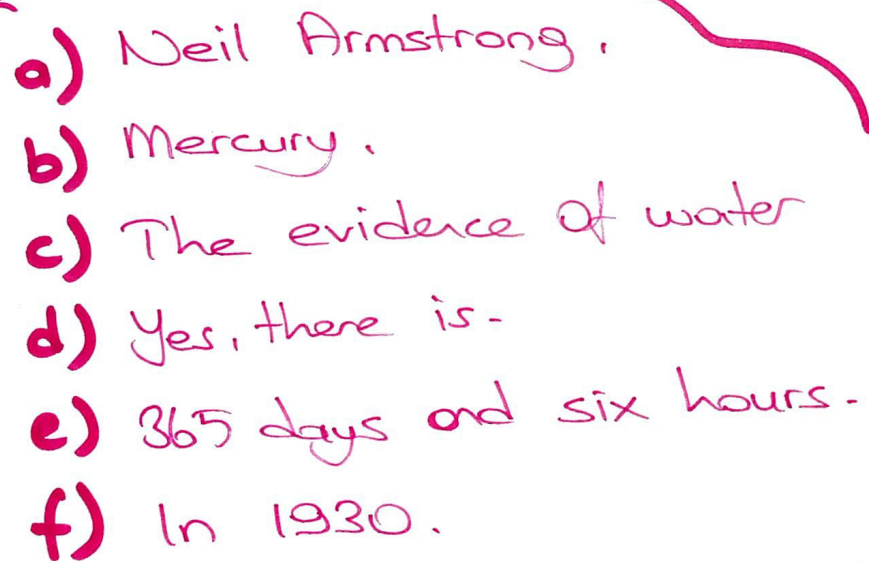 a) Neil Armstrong.
b) Mercury.
c) The evidence of water
d) Yes, there is.
e) 365 days and six hours.
f) In 1930.